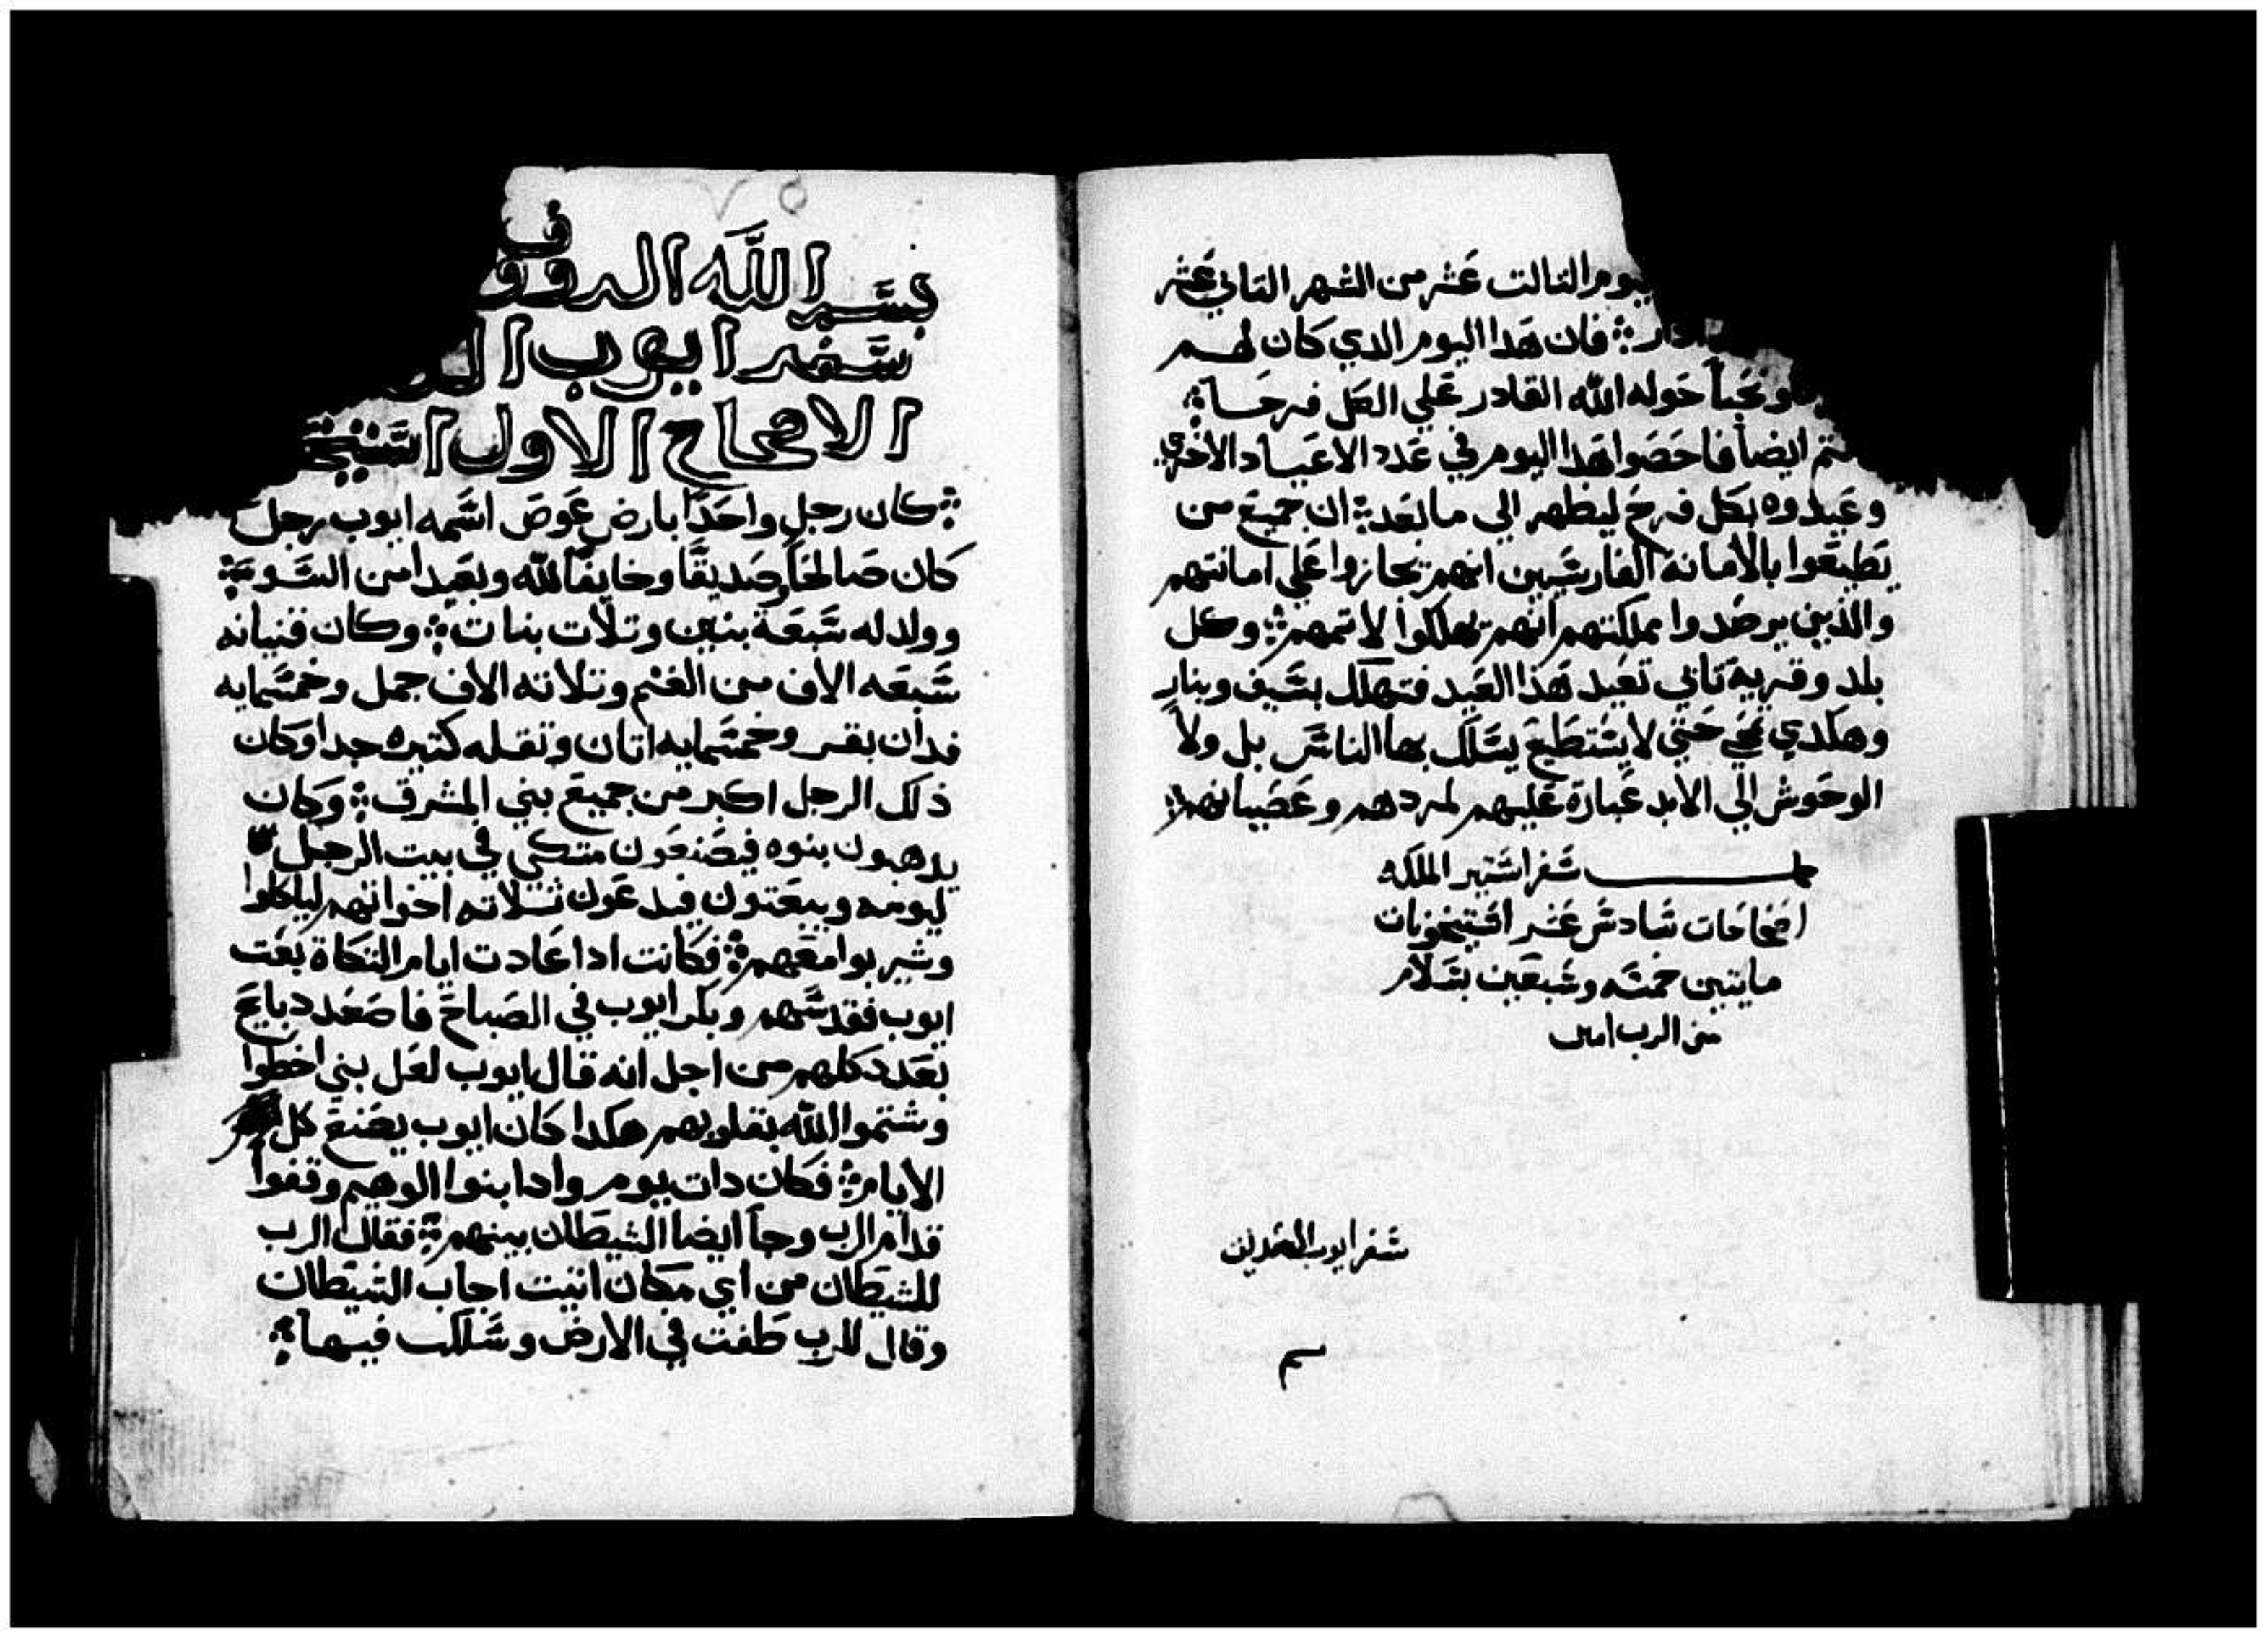 يوم التالت عشر من الشهر التاني عشر
ادار فان هدا اليوم الدي كان لهم
ونحيباً حوله الله القادر علي الكل فرحاً
ايضاً فاحصوا هدا اليوم في عدد الاعياد الاخري
وعيدوه بكل فرح ليظهر الي ما بعد ان جميع من
يطيعوا بالامانه الفارسيين انهم يجازوا علي امانتهم
والذين يرصدوا مملكتهم انهم يهلكوا لاتمهم وكل
بلد وقرية تابي تعيد هذا العيد فتهلك بسيف وبنار
وهكدي حتي لا يستطيع يسلك بها الناس بل ولا
الوحوش الي الابد عبارة عليهم لمردهم وعصيانهم
سفر استير الملكه
اصحاحات سادس عشر استيخونات
مايتين خمسه وسبعين بسلام
من الرب امين
سفر ايوب الصديق
بسم الله الروو
سفر ايوب
الاصحاح الاول استيخ
كان رجل واحداً بارض عوص اسمه ايوب رجل
كان صالحاً وصديقاً وخايفاً لله وبعيداً من السو
وولد له سبعة بنين وتلات بنات وكان قنيانه
سبعه الاف من الغنم وتلاته الاف جمل وخمسمايه
فدان بقر وخمسمايه اتان ونقله كتيره جدا وكان
ذلك الرجل اكبر من جميع بني المشرق وكان
يدهبون بنوه فيصنعون متكي في بيت الرجل
ليومه ويبعتون فيدعون تلاته اخواتهم لياكلوا
وشربوا معهم فكانت ادا عادت ايام التكاة بعت
ايوب فقدسهم وبكر ايوب في الصباح فاصعد دبايح
بعدد كلهم من اجل انه قال ايوب لعل بني اخطوا
وشتموا الله بقلوبهم هكدا كان ايوب يصنع كل
الايام فكان دات يوم وادا بنوا الوهيم وقفوا
قدام الرب وجا ايضا الشيطان بينهم فقال الرب
للشيطان من اي مكان اتيت اجاب الشيطان
وقال للرب طفت في الارض وسلكت فيها